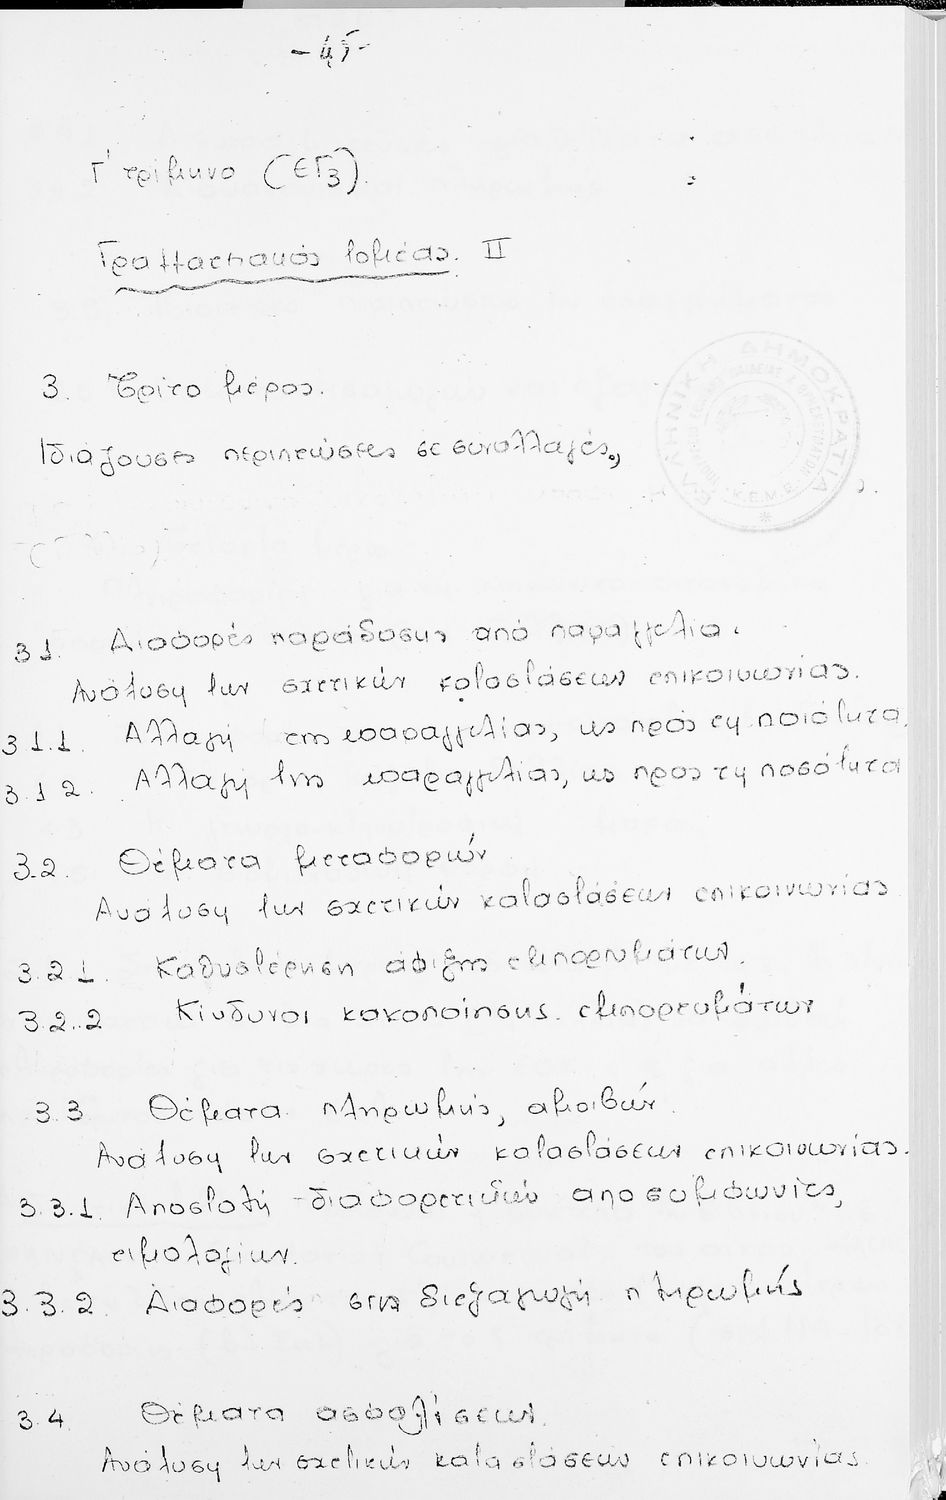 - 45 -
Γ' τρίμηνο (ΕΓ3).
Γραμματιακός τομέας. II
3. Τρίτο μέρος.
Ιδιάζουσες περιπτώσεις σε συναλλαγές,
ΕΛΛΗΝΙΚΗ ΔΗΜΟΚΡΑΤΙΑ
Κ.Ε.Μ.Ε.
3.1. Διαφορές παράδοσης από παραγγελία.
Ανάλυση των σχετικών καταστάσεων επικοινωνίας.
3.1.1. Αλλαγή της παραγγελίας, ως προς τη ποιότητα.
3.1.2. Αλλαγή της παραγγελίας, ως προς τη ποσότητα
3.2. Θέματα μεταφορών
Ανάλυση των σχετικών καταστάσεων επικοινωνίας
3.2.1. Καθυστέρηση άφιξης εμπορευμάτων.
3.2.2 Κίνδυνοι κακοποίησης εμπορευμάτων
3.3 Θέματα πληρωμής, αμοιβών.
Ανάλυση των σχετικών καταστάσεων επικοινωνίας.
3.3.1. Αποστολή διαφορετικών από συμφωνίες,
τιμολογίων.
3.3.2 Διαφορές στη διεξαγωγή πληρωμής
3.4 Θέματα ασφαλίσεων.
Ανάλυση των σχετικών καταστάσεων επικοινωνίας.